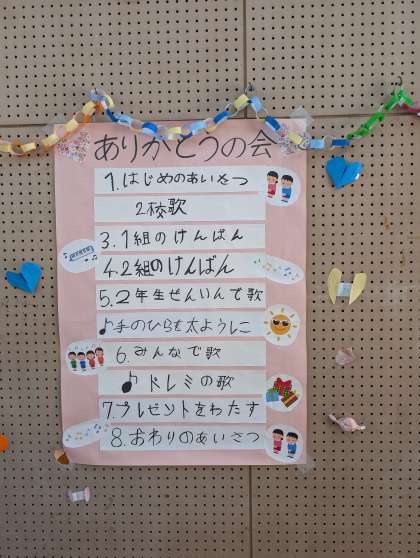 ありがとうの会
1.はじめのあいさつ
2校歌
3.1組のけんばん
4.2組のけんばん
5.2年生せんいんで歌
♪手のひらを太ように
6.みんなで歌
♪ドレミの歌
7.プレゼントをわたす
8.おわりのあいさつ